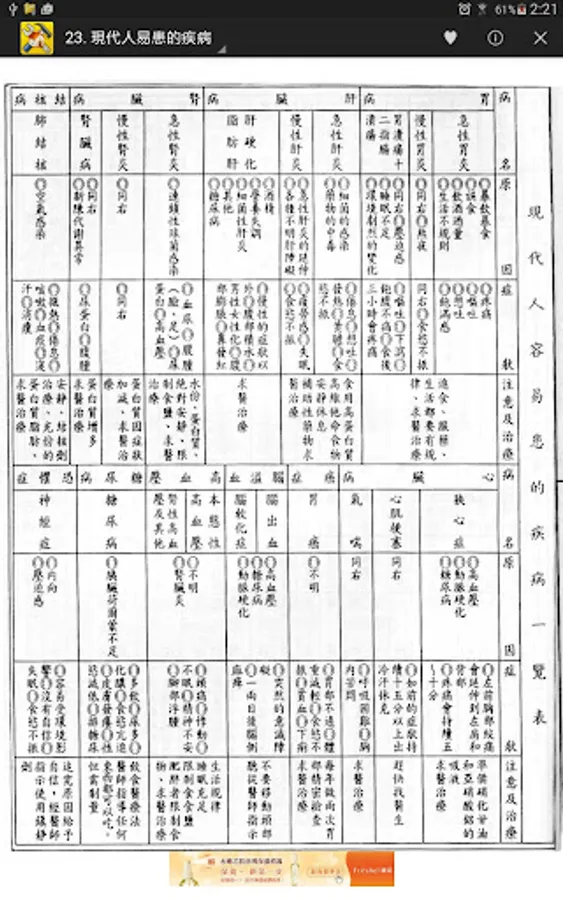 61% 2:21
23. 現代人易患的疾病
現代人容易患的疾病一覽表
病名
原因
症狀
注意及治療
胃病
急性胃炎
暴飲暴食
誤食
飲酒過量
生活不規則
疼痛
嘔吐
想吐
飽滿感
進食、服藥、生活都要有規律、求醫治療
慢性胃炎
同右
熬夜
同右
食慾不振
胃潰瘍十二指腸潰瘍
同右
壓迫感
睡眠不足
環境劇烈的變化
嘔吐
下瀉
飽腹不痛
食後三小時會疼痛
肝臟病
急性肝炎
細菌的感染
藥物的中毒
倦怠
想吐
發熱
黃膽
食慾不振
食用高蛋白質高維他命食物安靜休息
補助性藥物求醫治療
慢性肝炎
急性肝炎的延伸
各種不明肝障礙
疲勞感
失眠
食慾不振
肝硬化
脂肪肝
酒精
營養失調
細菌性肝炎
其他
糖尿病
慢性的症狀以外
腹部積水
男性女性化
腹部膨脹
鼻發紅
求醫治療
腎臟病
急性腎炎
連鎖性球菌感染
血尿
腹腫（臉、足）
尿蛋白
高血壓
水份、蛋白質、絕對安靜、限制食鹽、求醫治療
慢性腎炎
同右
同右
蛋白質因症狀加減、求醫治療
腎臟病
同右
新陳代謝異常
尿蛋白
腹腫
蛋白質增多
求醫治療
結核病
肺結核
空氣感染
微熱
倦怠
咳嗽
血痰
盜汗
消瘦
安靜、結核劑治療、充份的蛋白質脂肪、求醫治療
病名
原因
症狀
注意及治療
心臟病
狹心症
高血壓
動脈硬化
糖尿病
左前胸部絞痛會延伸到左肩和背部
疼痛會持續五～十分
準備硝化甘油和亞硝酸鋁的吸液
求醫治療
心肌梗塞
同右
如前的症狀持續十五分以上出冷汗休克
趕快找醫生
氣喘
同右
呼吸困難
胸內苦悶
求醫治療
癌症
胃癌
不明
胃部不適
體重減輕
食慾不振
貧血
下痢
每年做兩次胃部精密檢查
求醫治療
腦溢血
腦出血
腦軟化症
高血壓
糖尿病
動脈硬化
突然的意識障礙
一兩日後腦側麻痺
不要移動頭部
聽從醫師指示
高血壓
本態性高血壓
不明
頭痛
悸動
不眠
精神不安
腳部浮腫
生活規律
睡眠充足
限制食食鹽
肥胖者限制食物、求醫治療
腎性高血壓及其他
腎臟炎
糖尿病
糖尿病
胰臟荷爾蒙不足
多飲
尿多
老化
食慾亢進
皮膚發癢
性慾減低
糖尿
飲食醫療法
醫師指導任何東西都可以吃，但需制量
恐懼症
神經症
內向
壓迫感
容易受環境影響
沒有自信
失眠
食慾不振
追究原因給予自信，經醫師指示使用鎮靜劑